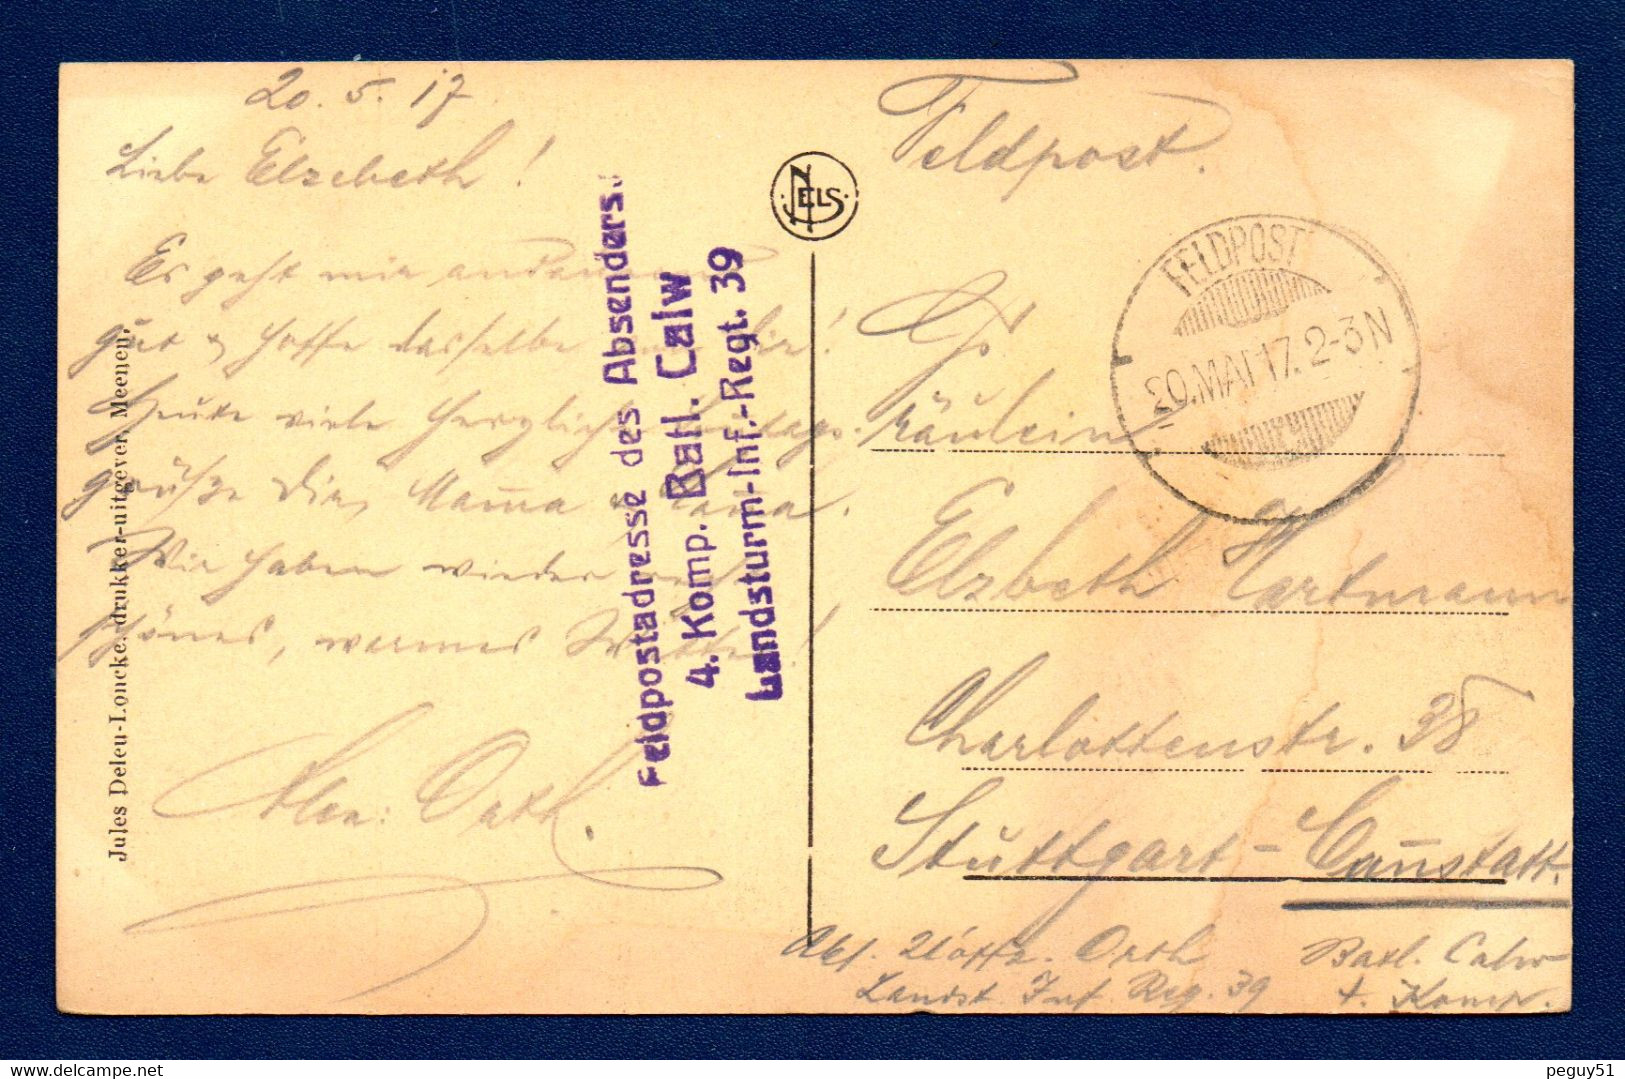 20.5.17
Liebe Elzebeth!
Es geht mir andauernd
gut & hoffe dasselbe von dir!
Heute viele herzliche
grüße dir, Mama & Papa.
Wir haben wieder
schönes, warmes Wetter!
Orth.
Jules Deleu-Loncke, drukker-uitgever, Meenen.
Feldpostadresse des Absenders:
4. Komp. Batl. Calw
Landsturm-Inf.-Regt. 39
NELS
Feldpost.
FELDPOST
20.MAI 17. 2-3N
Fräulein
Elzbeth Hartmann
Charlottenstr. 38
Stuttgart-Cannstatt.
Abs. Orth Batl. Calw
Landst. Inf. Reg. 39 4. Komp.
peguy51
delcampe.net